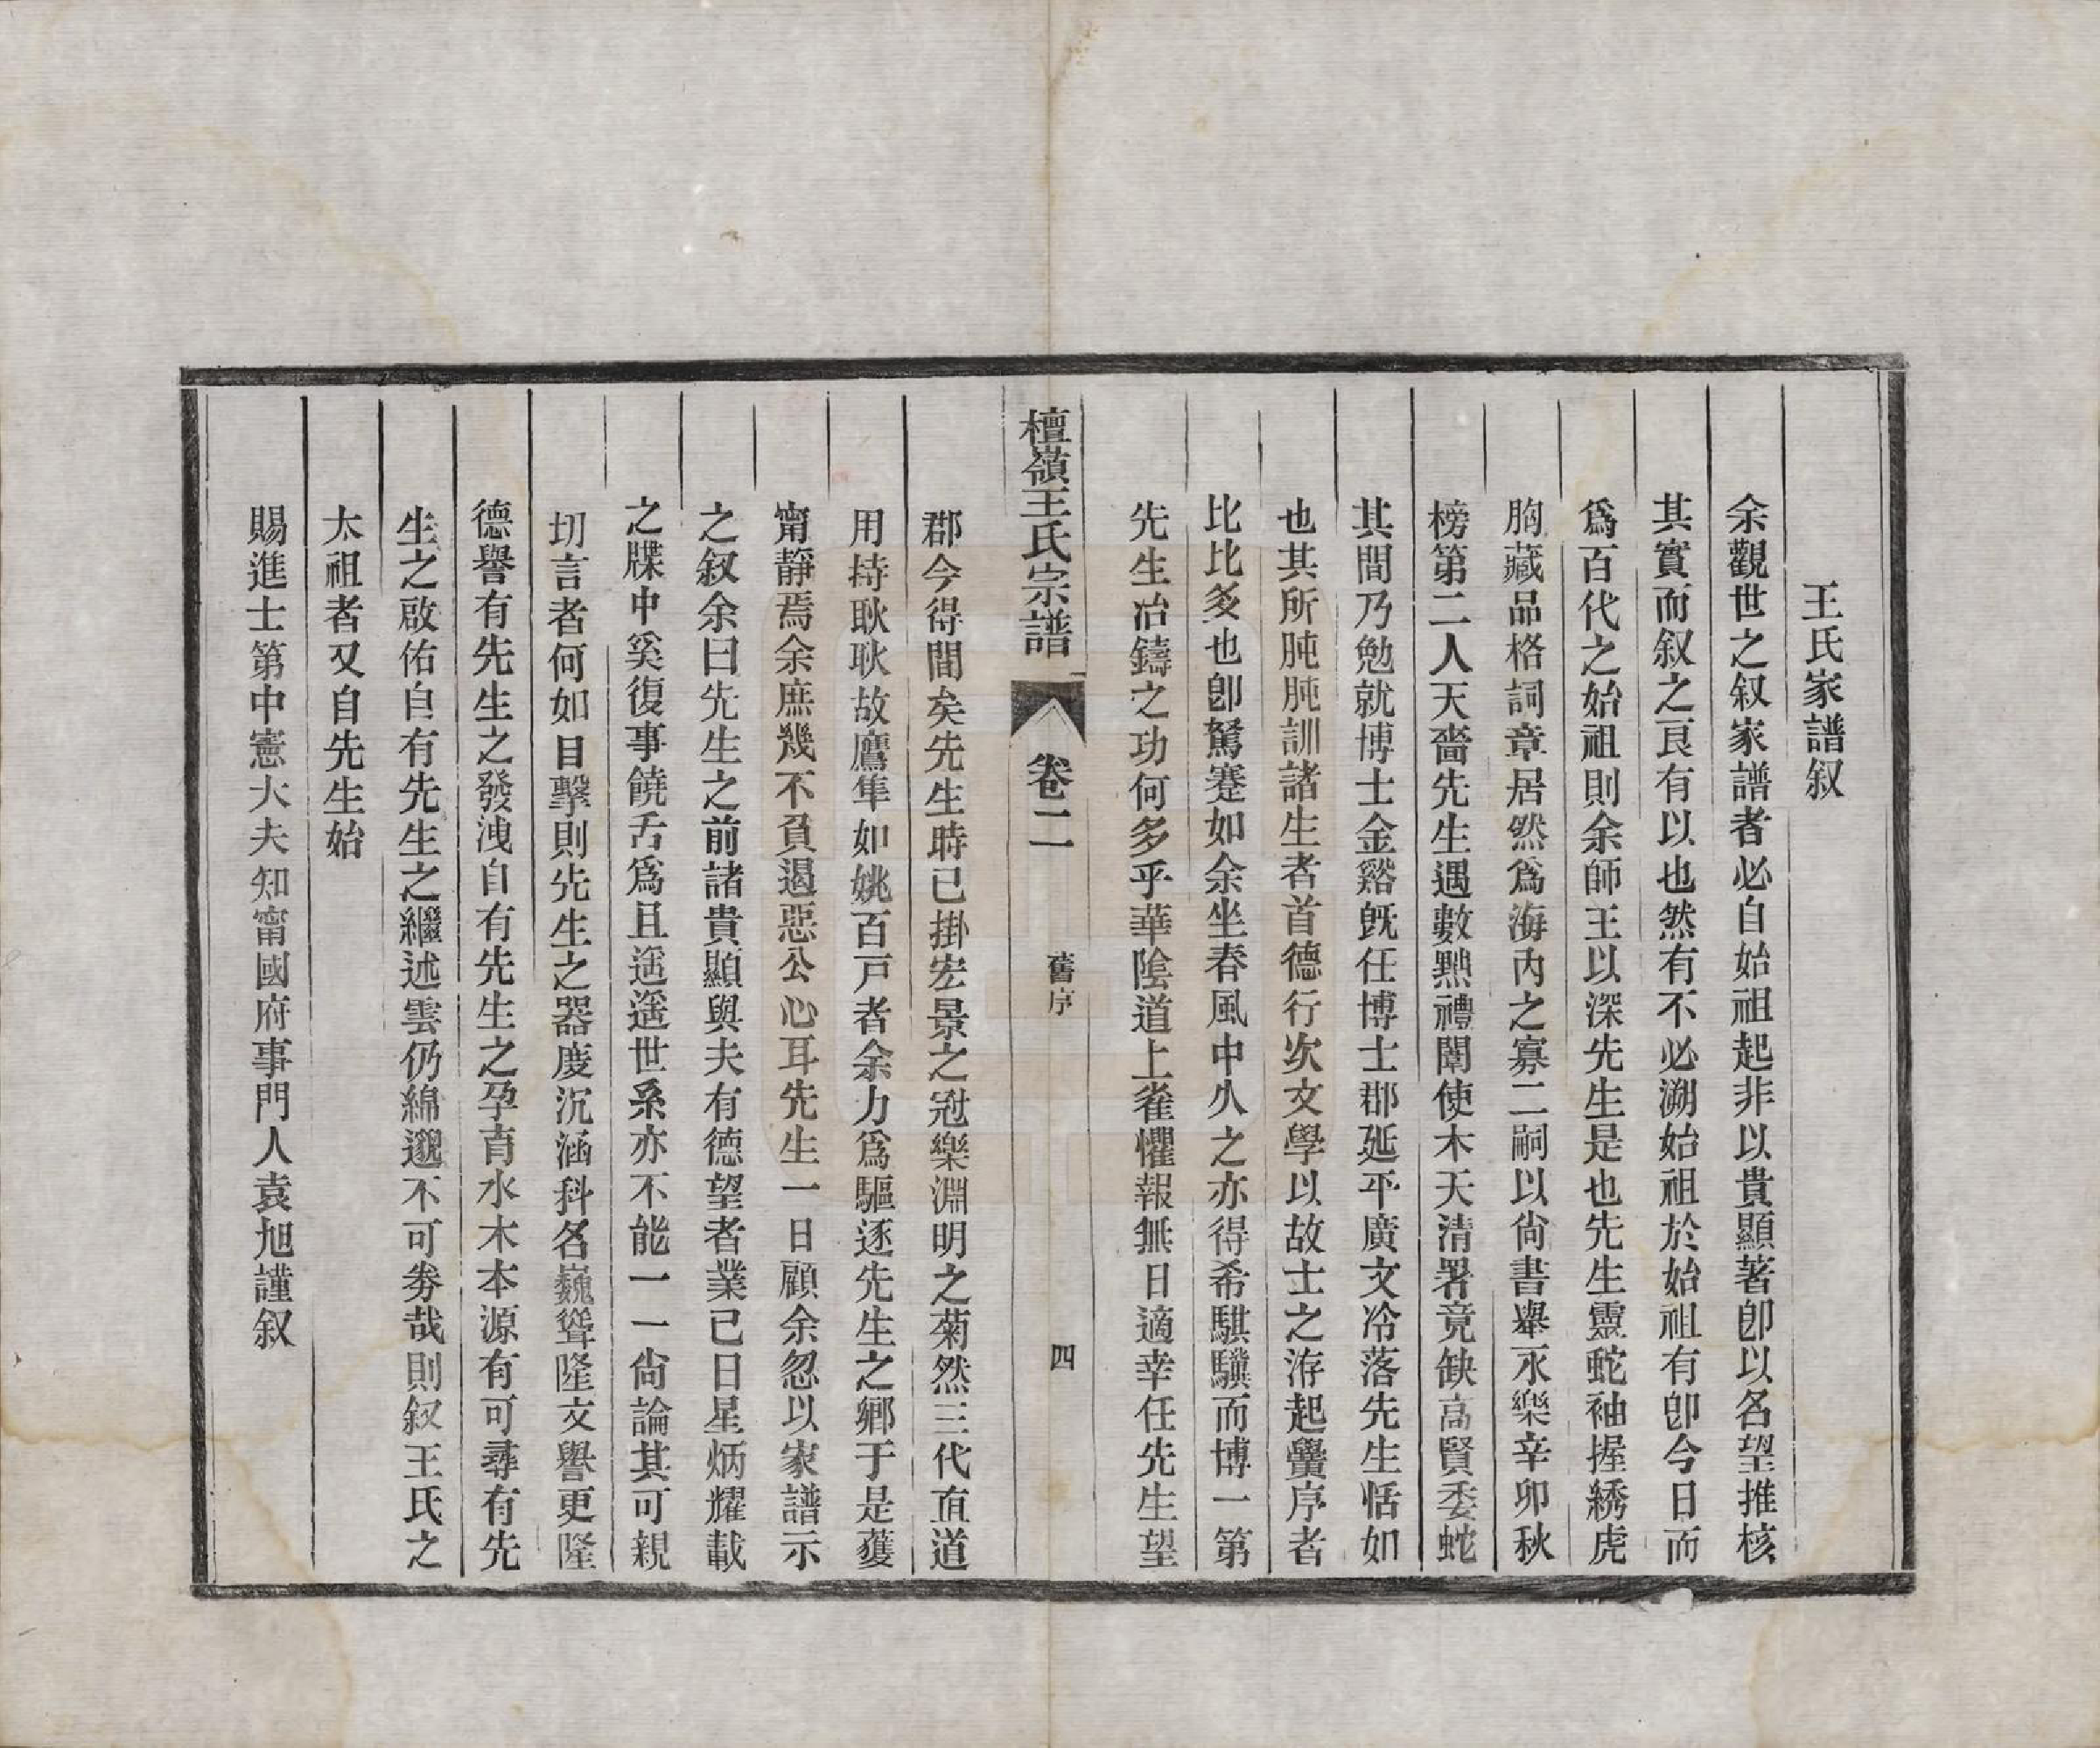 王氏家譜叙
余觀世之叙家譜者必自始祖起非以貴顯著卽以名望推核
其實而叙之良有以也然有不必溯始祖於始祖有卽今日而
爲百代之始祖則余師王以深先生是也先生靈蛇袖握綉虎
胸藏品格詞章居然爲海內之寡二嗣以尙書舉永樂辛卯秋
榜第二人天嗇先生遇數黙禮闈使木天清署竟缺高賢委蛇
其間乃勉就博士金谿旣任博士郡延平廣文冷落先生恬如
也其所肫肫訓諸生者首德行次文學以故士之洊起黌序者
比比多也卽駑蹇如余坐春風中久之亦得希騏驥而博一第
先生冶鑄之功何多乎華陰道上雀懼報無日適幸任先生望
檀嶺王氏宗譜
卷二
舊序
四
郡今得間矣先生時已掛宏景之冠樂淵明之菊然三代直道
用持耿耿故鷹隼如姚百戸者余力爲驅逐先生之鄉于是獲
甯靜焉余庶幾不負遏惡公心耳先生一日顧余忽以家譜示
之叙余曰先生之前諸貴顯與夫有德望者業已日星炳耀載
之牒中奚復事饒舌爲且遥遥世系亦不能一一尙論其可親
切言者何如目擊則先生之器度沉涵科名巍聳隆文譽更隆
德譽有先生之發洩自有先生之孕育水木本源有可尋有先
生之啟佑自有先生之繼述雲仍綿邈不可券哉則叙王氏之
太祖者又自先生始
賜進士第中憲大夫知甯國府事門人袁旭謹叙